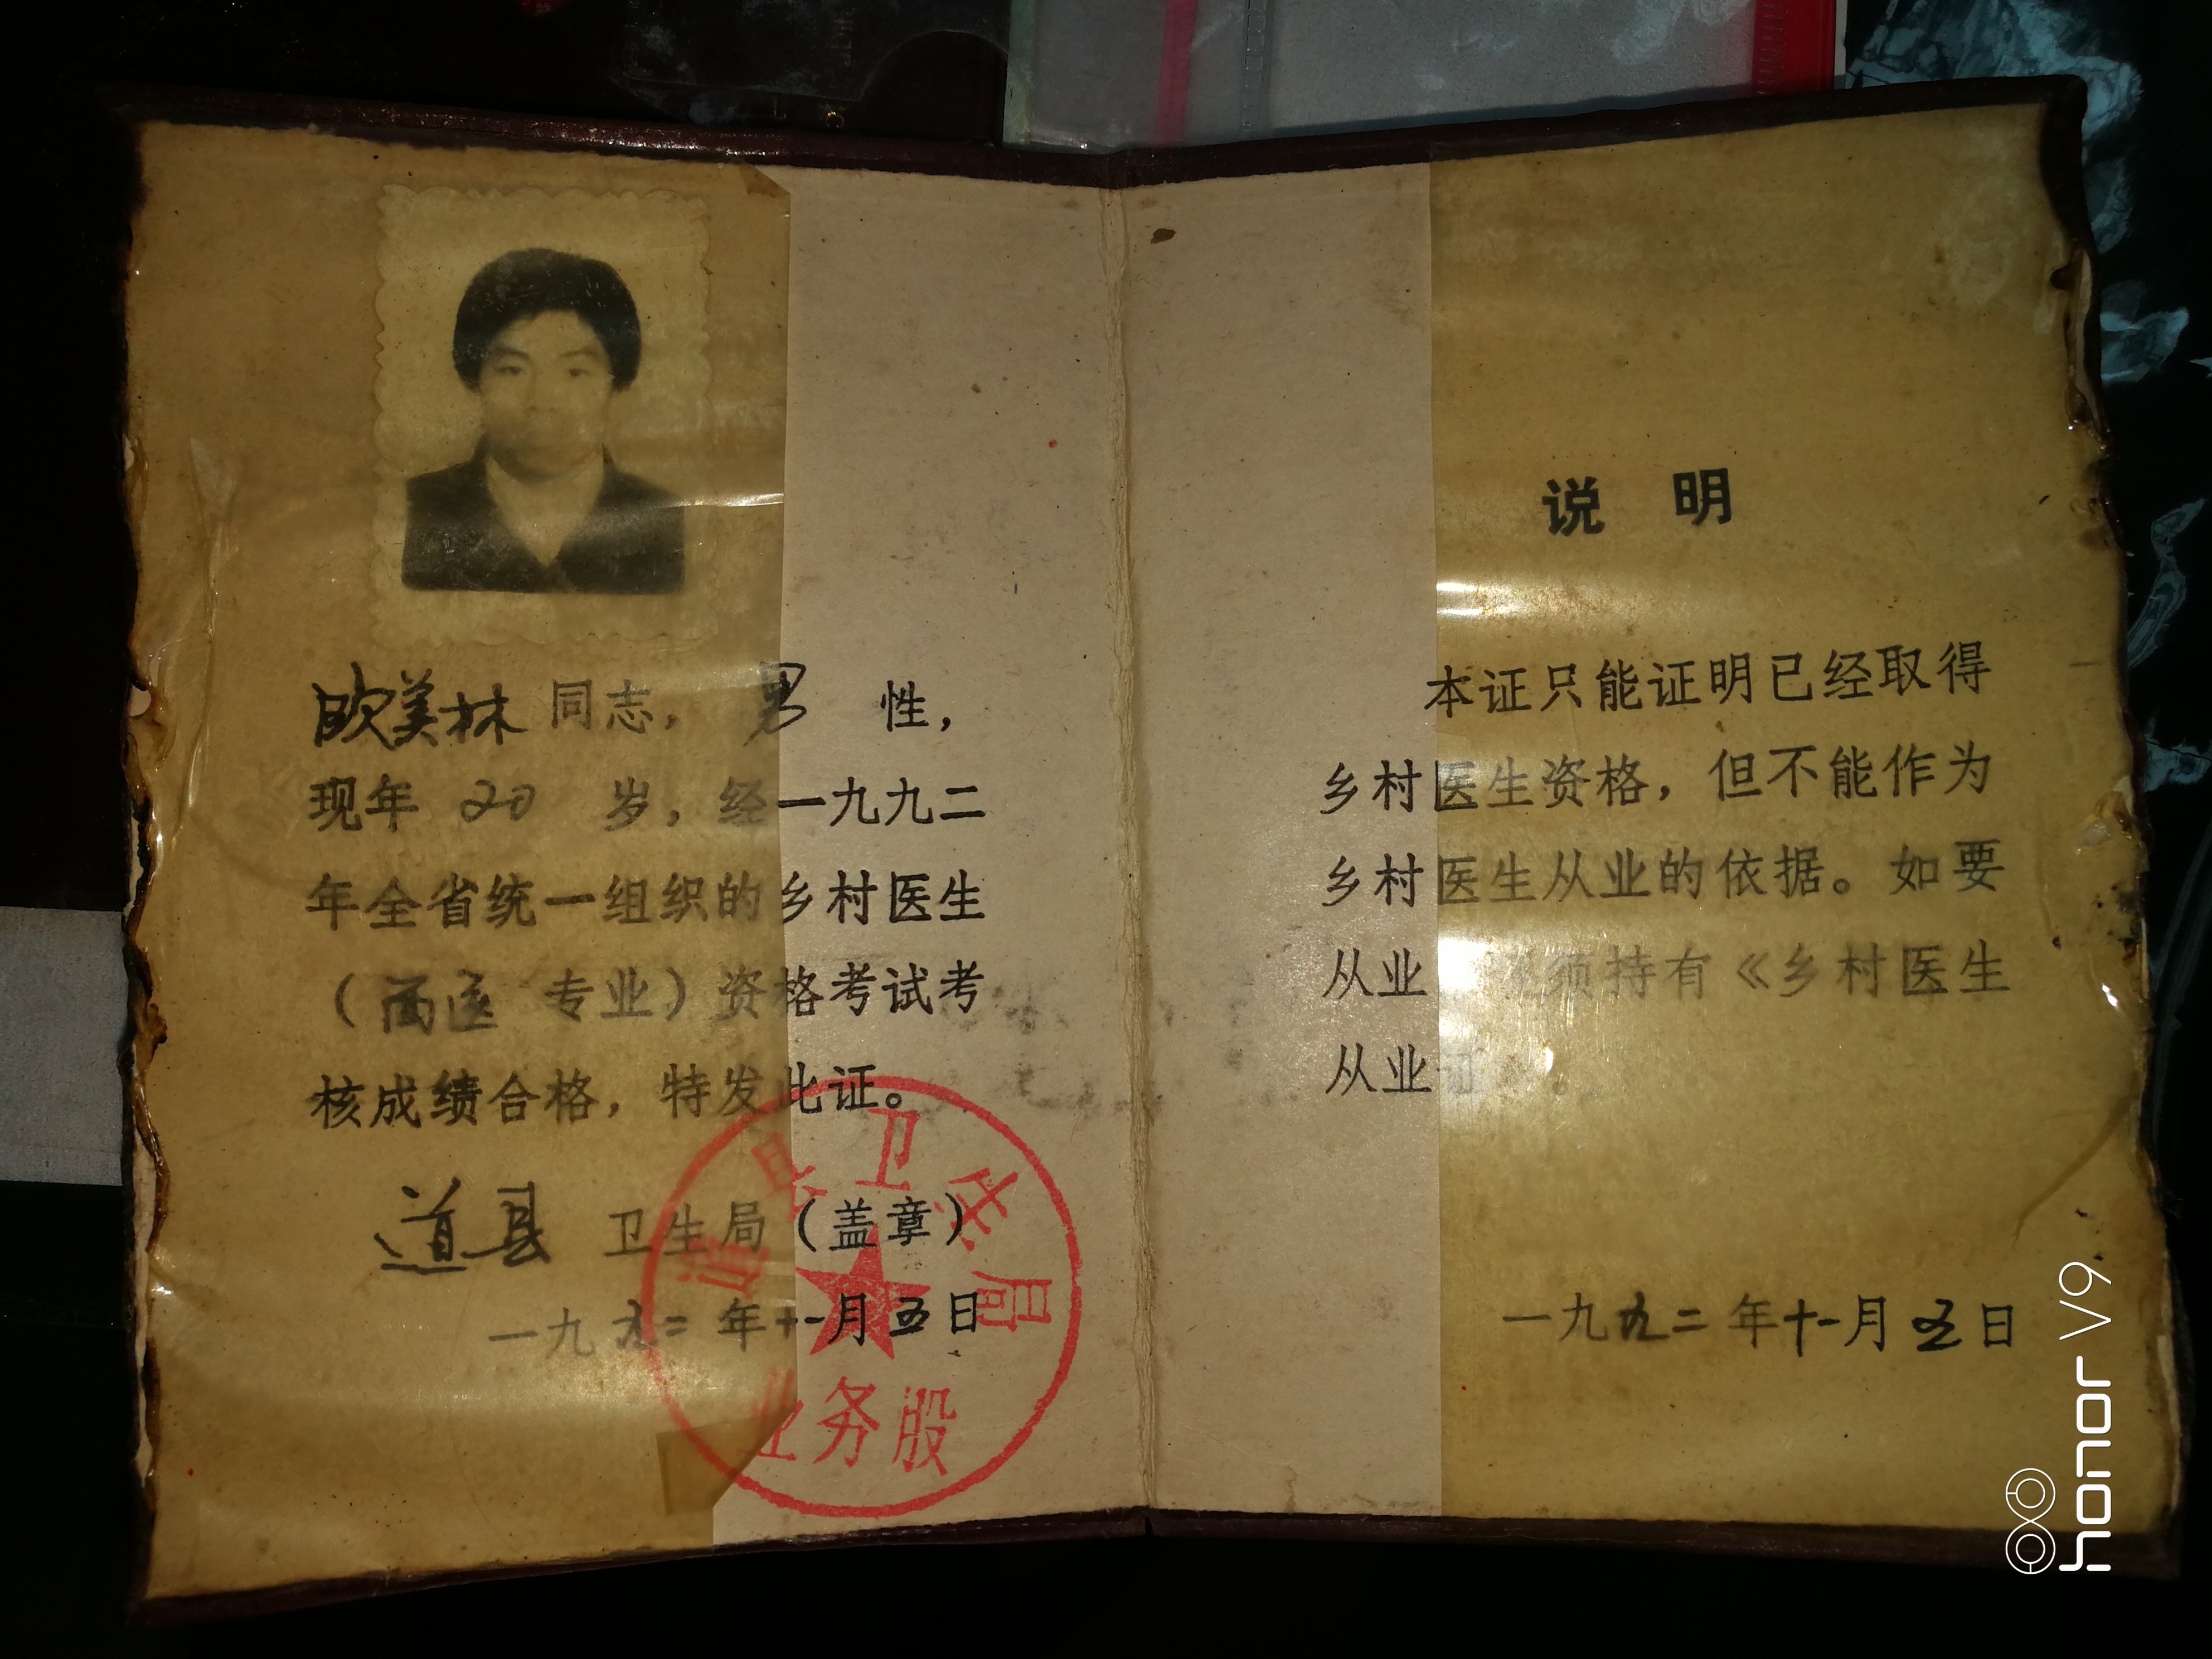 欧美林同志，男性，
现年 20 岁，经一九九二
年全省统一组织的乡村医生
（西医 专业）资格考试考
核成绩合格，特发此证。
道县 卫生局（盖章）
一九九二年十一月五日
道县卫生局
业务股
说 明
本证只能证明已经取得
乡村医生资格，但不能作为
乡村医生从业的依据。如要
从业 须持有《乡村医生
从业证
一九九二年十一月五日
honor V9